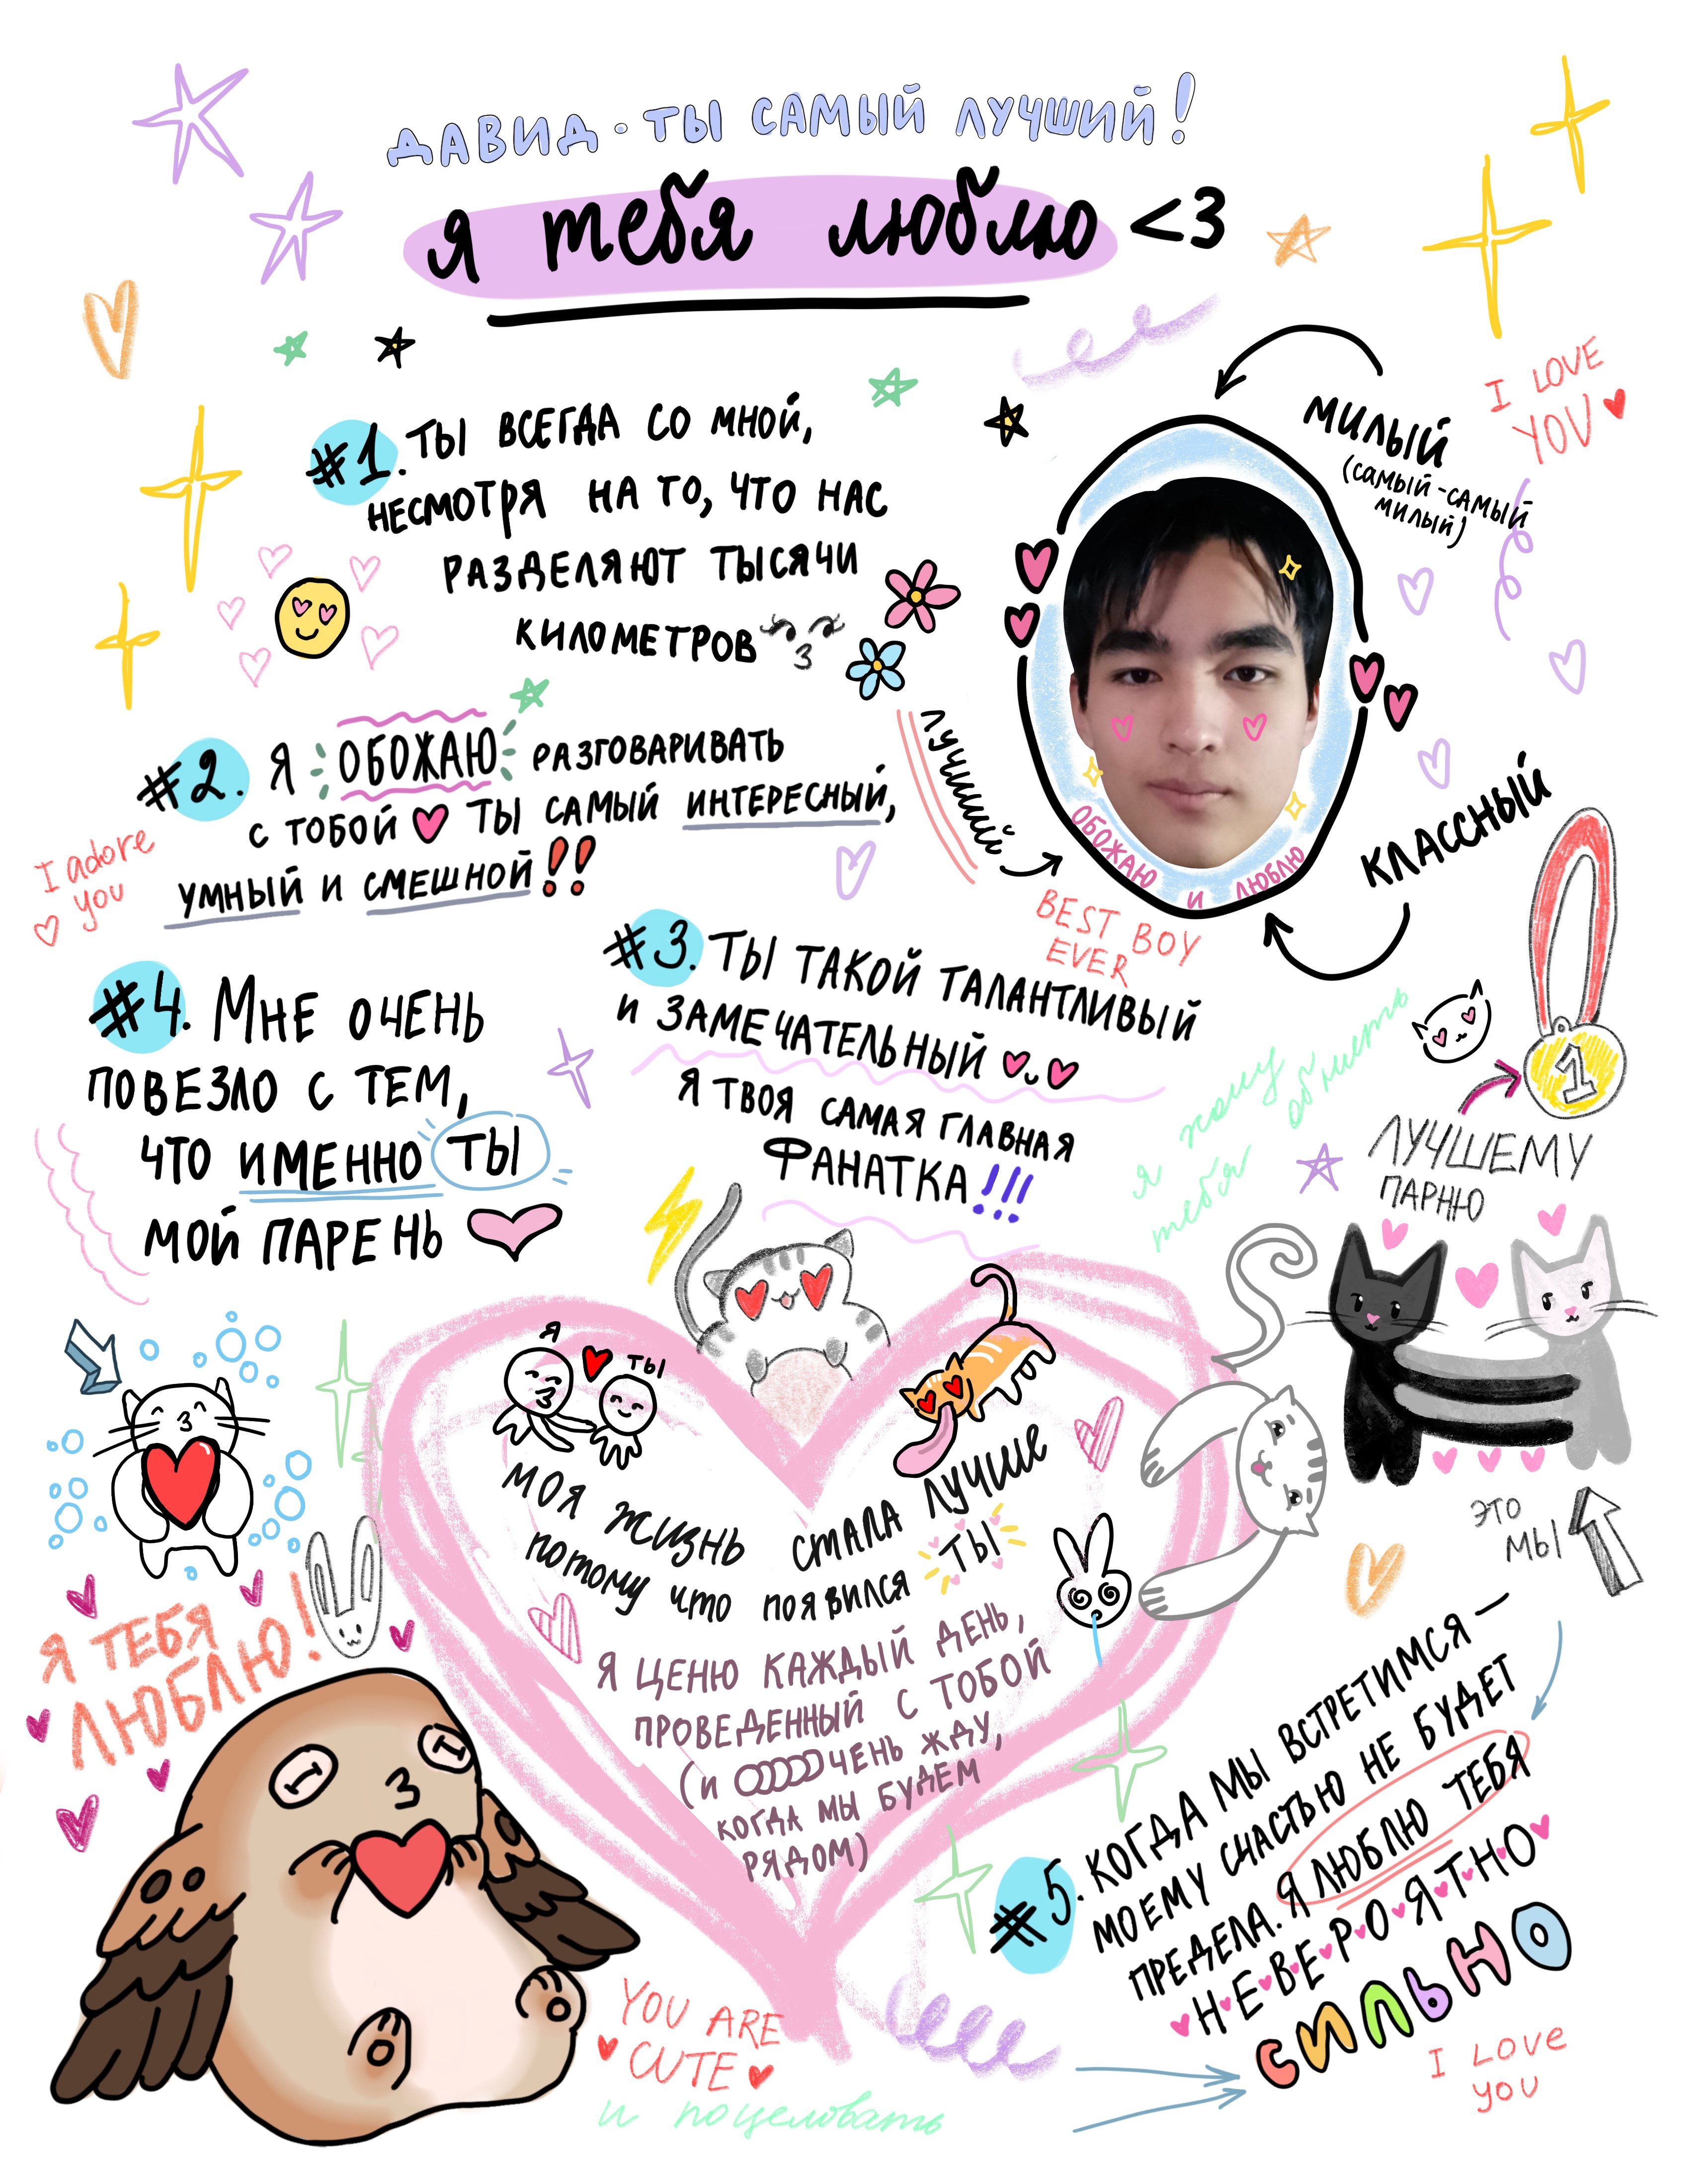 ДАВИД - ТЫ САМЫЙ ЛУЧШИЙ!
я тебя люблю <3
I LOVE
YOU
МИЛЫЙ
(САМЫЙ-САМЫЙ
МИЛЫЙ)
#1. ТЫ ВСЕГДА СО МНОЙ,
НЕСМОТРЯ НА ТО, ЧТО НАС
РАЗДЕЛЯЮТ ТЫСЯЧИ
КИЛОМЕТРОВ
ЛУЧШИЙ
ОБОЖАЮ И ЛЮБЛЮ
КЛАССНЫЙ
BEST BOY
EVER
#2. Я ОБОЖАЮ РАЗГОВАРИВАТЬ
С ТОБОЙ ТЫ САМЫЙ ИНТЕРЕСНЫЙ,
УМНЫЙ И СМЕШНОЙ!!
I adore
you
#3. ТЫ ТАКОЙ ТАЛАНТЛИВЫЙ
И ЗАМЕЧАТЕЛЬНЫЙ
Я ТВОЯ САМАЯ ГЛАВНАЯ
ФАНАТКА!!!
#4. МНЕ ОЧЕНЬ
ПОВЕЗЛО С ТЕМ,
ЧТО ИМЕННО ТЫ
МОЙ ПАРЕНЬ
я хочу обнять
тебя
1
ЛУЧШЕМУ
ПАРНЮ
Я
ТЫ
МОЯ ЖИЗНЬ СТАЛА ЛУЧШЕ
ПОТОМУ ЧТО ПОЯВИЛСЯ ТЫ
Я ЦЕНЮ КАЖДЫЙ ДЕНЬ,
ПРОВЕДЕННЫЙ С ТОБОЙ
(И ОООООЧЕНЬ ЖДУ,
КОГДА МЫ БУДЕМ
РЯДОМ)
ЭТО
МЫ
Я ТЕБЯ
ЛЮБЛЮ!
#5. КОГДА МЫ ВСТРЕТИМСЯ —
МОЕМУ СЧАСТЬЮ НЕ БУДЕТ
ПРЕДЕЛА. Я ЛЮБЛЮ ТЕБЯ
Н·Е·В·Е·Р·О·Я·Т·Н·О
СИЛЬНО
YOU ARE
CUTE
и поцеловать
I LOVE
you